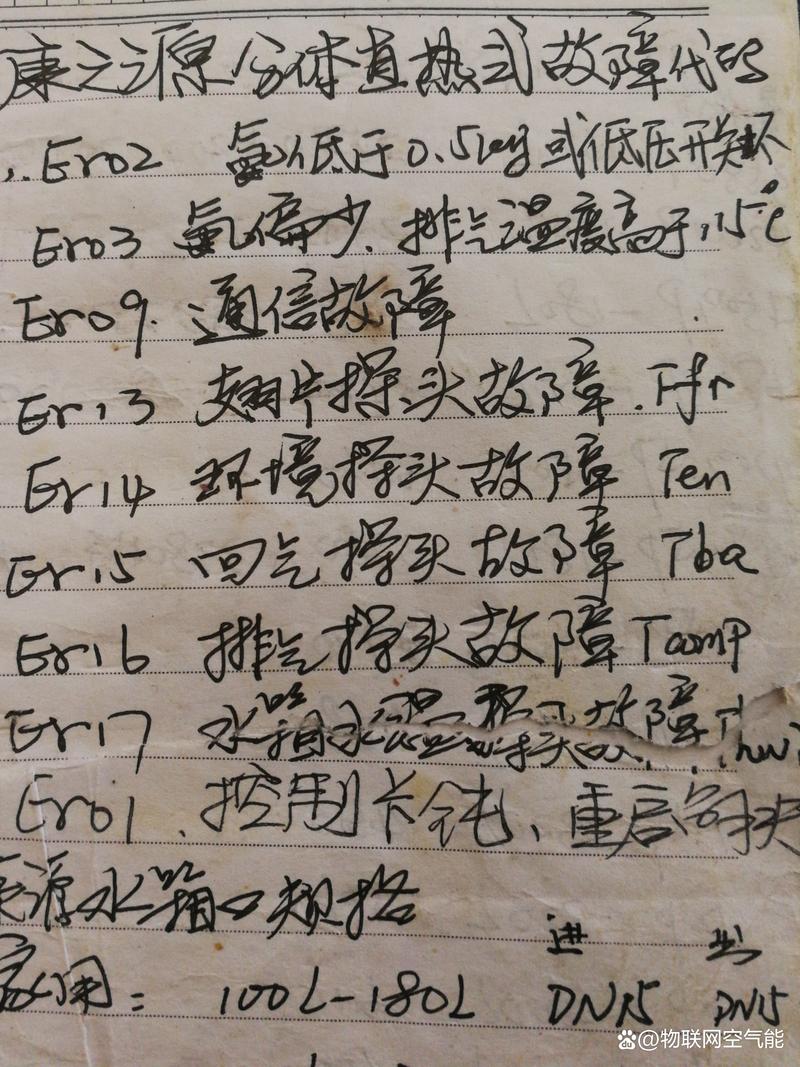 康之源分体直热式故障代码
Er02 氟低于0.5kg或低压开关坏
Er03 氟偏少.排气温度高于115℃
Er09.通信故障
Er13 翅片探头故障.Tfr
Er14 环境探头故障 Ten
Er15 回气探头故障 Tba
Er16 排气探头故障 Tcomp
Er17 水箱水温探头故障
Er01、控制卡钝、重启
源水箱口规格
进 出
家用：100L-180L DN15 DN15
@物联网空气能